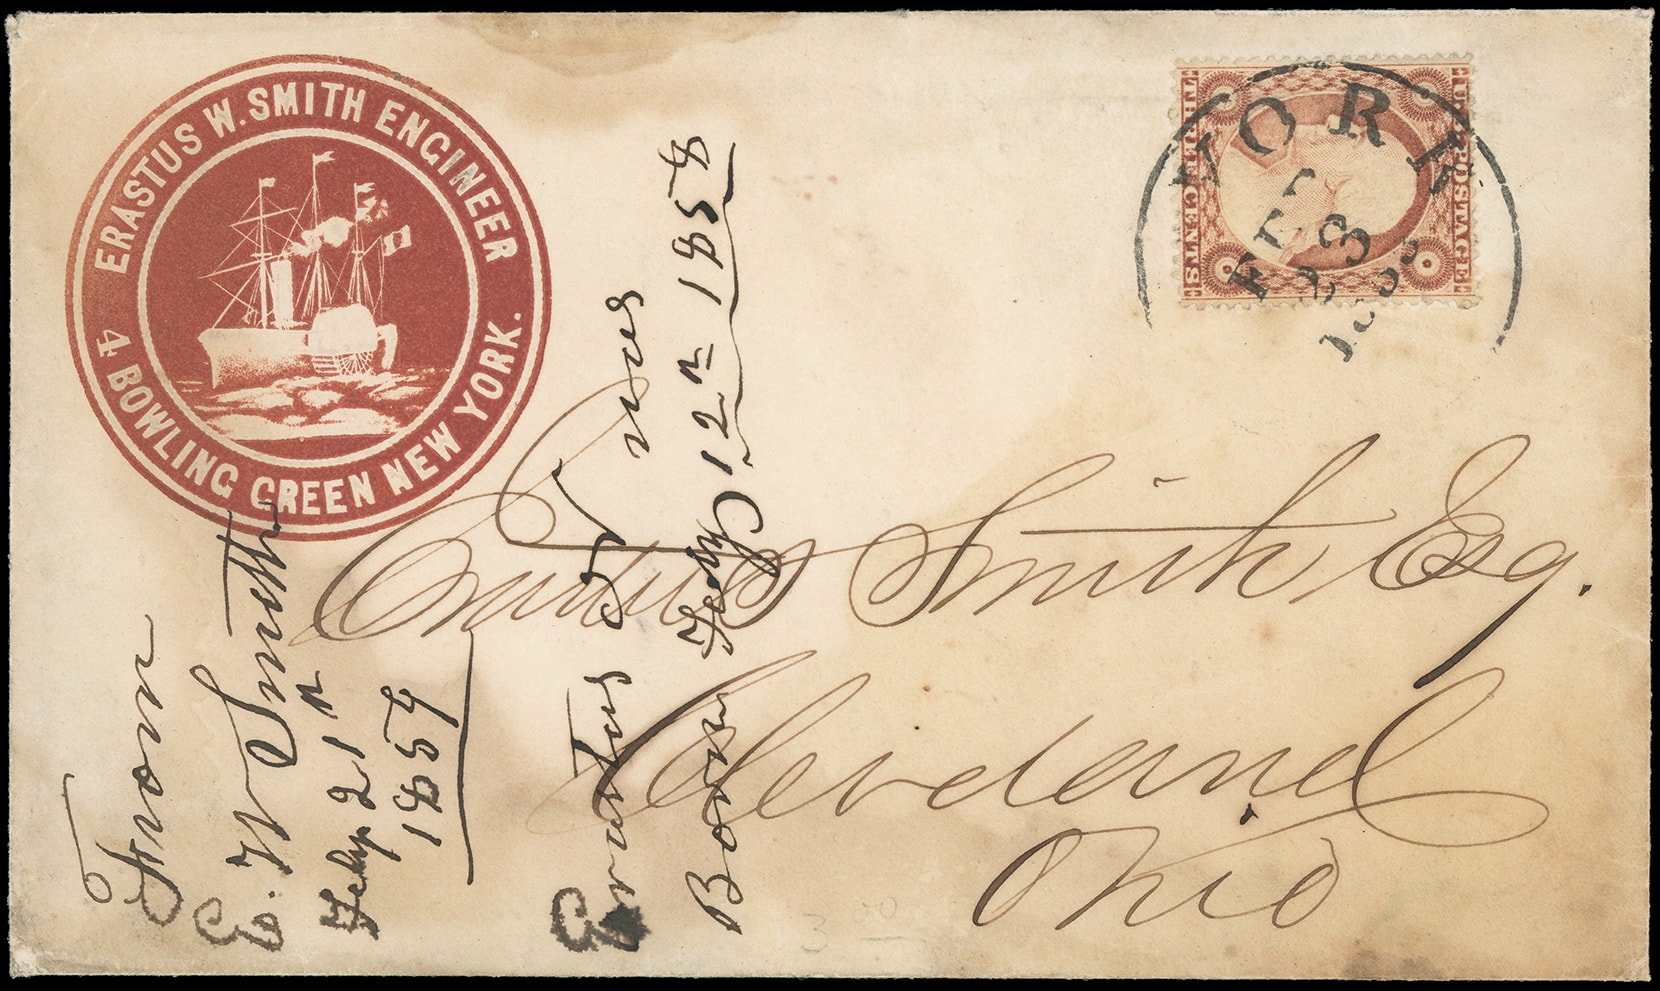 ERASTUS W. SMITH ENGINEER
4 BOWLING GREEN NEW YORK.
U.S. POSTAGE
THREE CENTS
YORK
FEB
23
Erastus Smith Esq.
Cleveland
Ohio
From
E. W Smith
Feby 21st
1857
Erastus
Born Feby 12th 1858
3 00